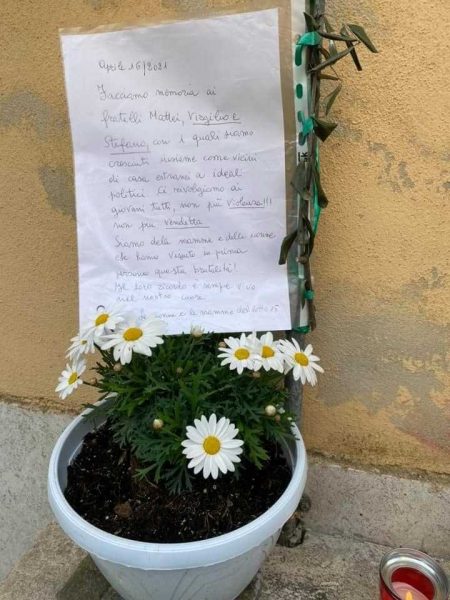 Aprile 16/2021
Facciamo memoria ai
fratelli Mattei, Virgilio e
Stefano, con i quali siamo
cresciuti insieme come vicini
di casa estranei a ideali
politici. Ci rivolgiamo ai
giovani tutti, non più violenza!!!
non più vendetta
Siamo delle mamme e delle nonne
che hanno vissuto in prima
persona questa brutalità!
Il loro ricordo è sempre vivo
nel nostro cuore
nonne e le mamme del lotto 15